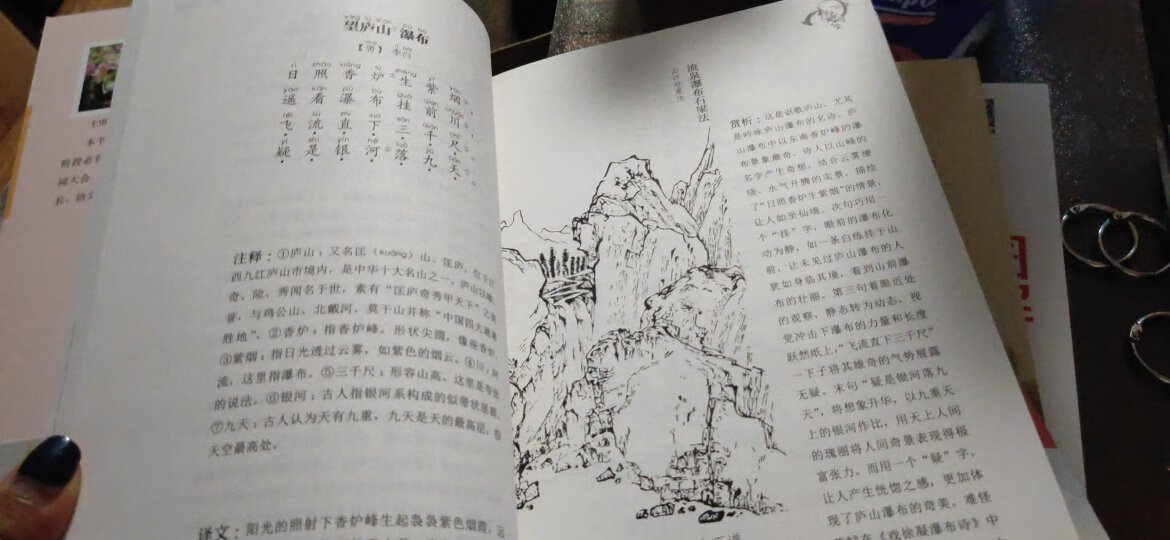 望庐山瀑布
【唐】李白
日照香炉生紫烟
遥看瀑布挂前川
飞流直下三千尺
疑是银河落九天
注释：①庐山：又名匡（kuāng）山、匡庐，位于江
西九江庐山市境内，是中华十大名山之一，庐山以雄、
奇、险、秀闻名于世，素有“匡庐奇秀甲天下”之美
誉，与鸡公山、北戴河、莫干山并称“中国四大避暑
胜地”。②香炉：指香炉峰。形状尖圆，像座香炉。
③紫烟：指日光透过云雾，如紫色的烟云。④川：河
流，这里指瀑布。⑤三千尺：形容山高。这里是夸张
的说法。⑥银河：古人指银河系构成的带状星群。
⑦九天：古人认为天有九重，九天是天的最高层，指
天空最高处。
译文：阳光的照射下香炉峰生起袅袅紫色烟霞，远
流泉瀑布石梁法
赏析：这是讴歌庐山，尤其
是吟咏庐山瀑布的名诗。庐
山瀑布中以东南香炉峰的瀑
布景象最奇，诗人以山峰的
名字产生奇想，结合云雾缭
绕、水气升腾的实景，描绘
了“日照香炉生紫烟”的情景，
让人如至仙境。次句巧用一
个“挂”字，眼前的瀑布化
动为静，如一条白练挂于山
前，让未见过庐山瀑布的人
犹如身临其境，看到山前瀑
布的壮丽。第三句着眼近处
的观察，静态转为动态，视
觉冲击下瀑布的力量和长度
跃然纸上，“飞流直下三千尺”
一下子将其雄奇的气势展露
无疑。末句“疑是银河落九
天”，将想象升华，以九重天
上的银河作比，用天上人间
的瑰丽将人间奇景表现得极
富张力。而用一个“疑”字，
让人产生恍惚之感，更加体
现了庐山瀑布的奇美，难怪
在《戏徐凝瀑布诗》中
本书
阶段必
词大会
长、语文